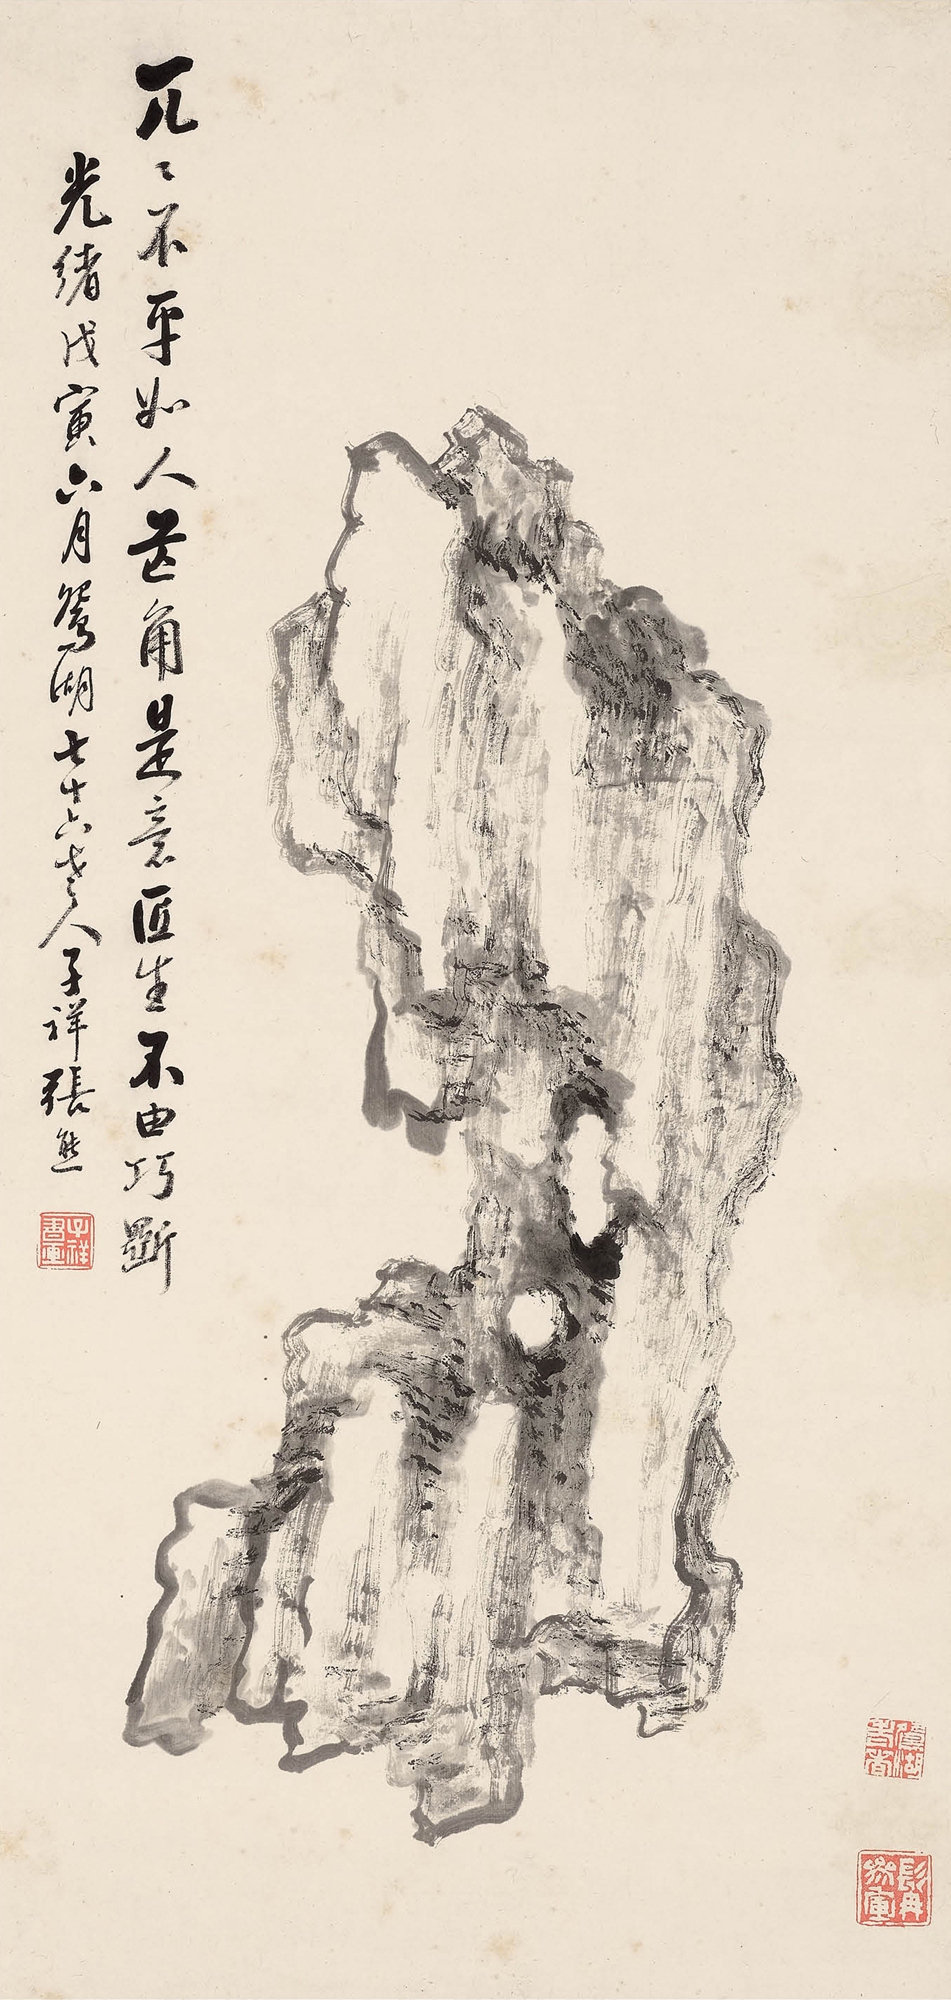 兀〻不平如人芒角是意匠生不由巧斲
光绪戊寅六月鴛湖七十六老人子祥張熊
子祥書畫
髯參軍